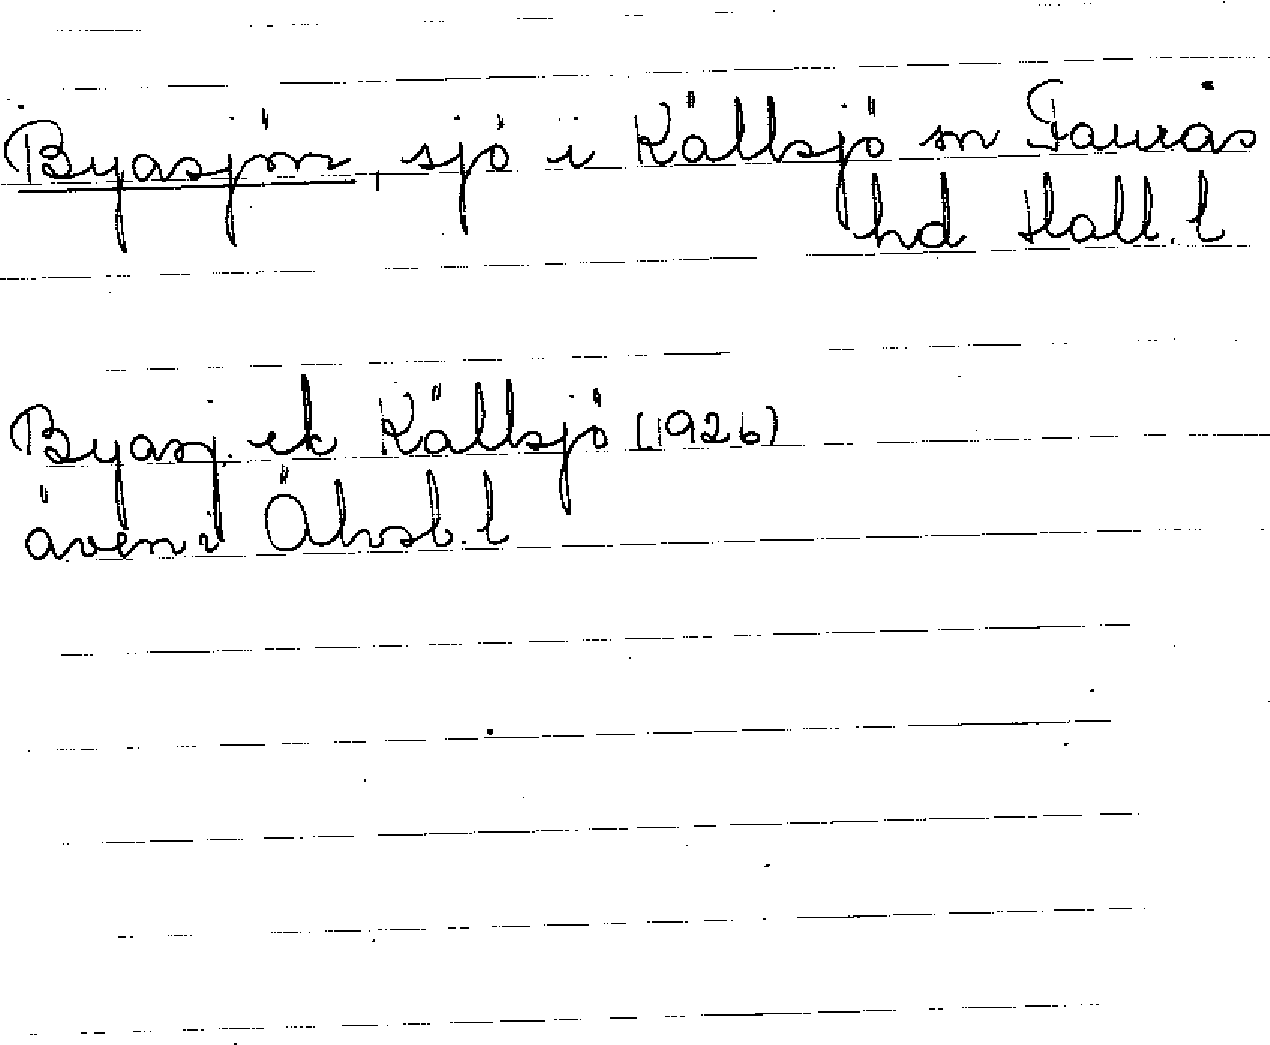 Byasjön, sjö i Källsjö sn Faurås
hd Hall. l
Byasj. ek Källsjö (1926)
även i Älvsb. l